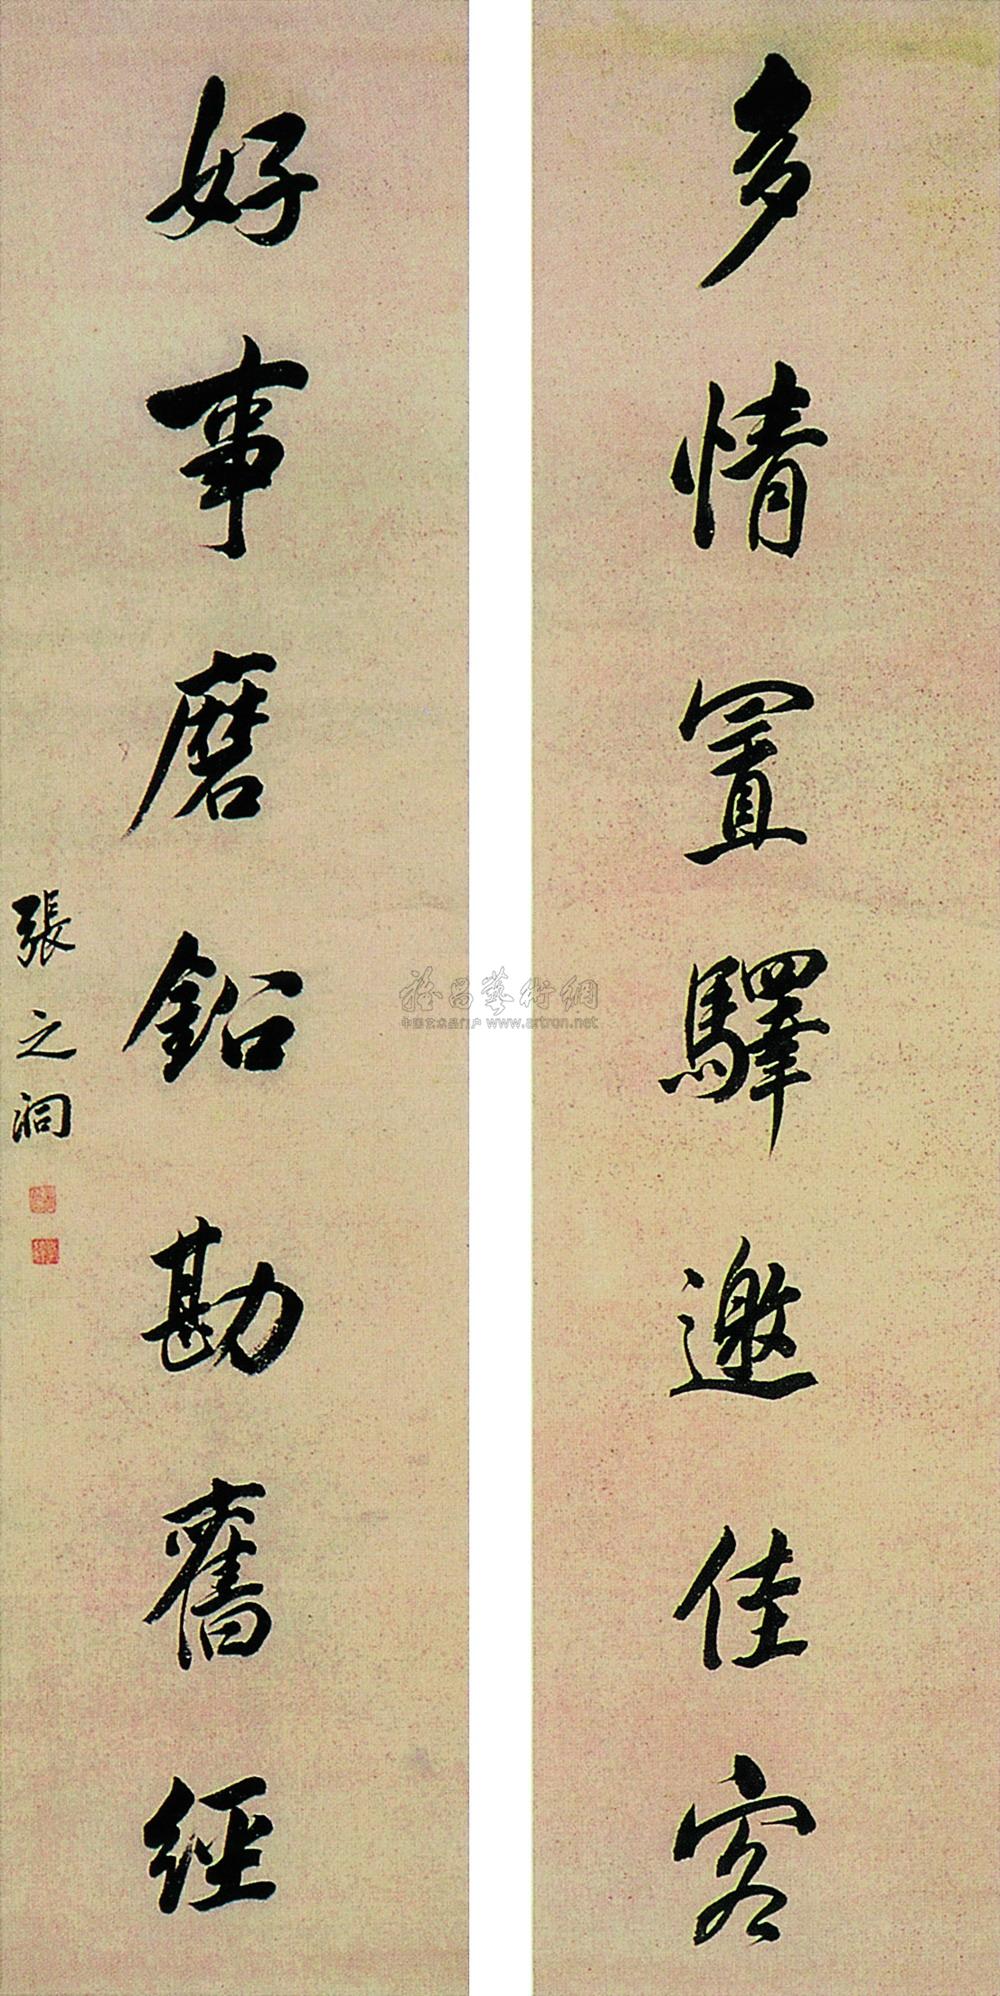 多情置驛邀佳客
好事磨鉛勘舊經
張之洞
雅昌藝術網
中国艺术品门户 www.artron.net